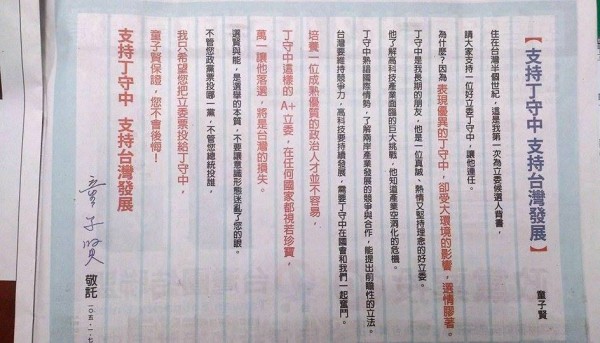 【支持丁守中 支持台灣發展】
童子賢
住在台灣半個世紀，這是我第一次為立委候選人背書，
請大家支持一位好立委丁守中，讓他連任。
為什麼？因為表現優異的丁守中，卻受大環境的影響，選情膠著。
丁守中是我長期的朋友，他是一位真誠、熱情又堅持理念的好立委。
他了解高科技產業面臨的巨大挑戰，他知道產業空洞化的危機。
丁守中熟諳國際情勢，了解兩岸產業發展的競爭與合作，能提出前瞻性的立法。
台灣要維持競爭力，高科技要持續發展，需要丁守中在國會和我們一起奮鬥。
培養一位成熟優質的政治人才並不容易，
丁守中這樣的 A+ 立委，在任何國家都視若珍寶，
萬一讓他落選，將是台灣的損失。
選賢與能，是選舉的本質，不要讓意識形態迷亂了您的眼。
不管您政黨票投哪一黨，不管您總統投誰，
我只希望您把立委票投給丁守中，
童子賢保證，您不會後悔！
支持丁守中 支持台灣發展
童子賢 敬託
一〇五．一．七